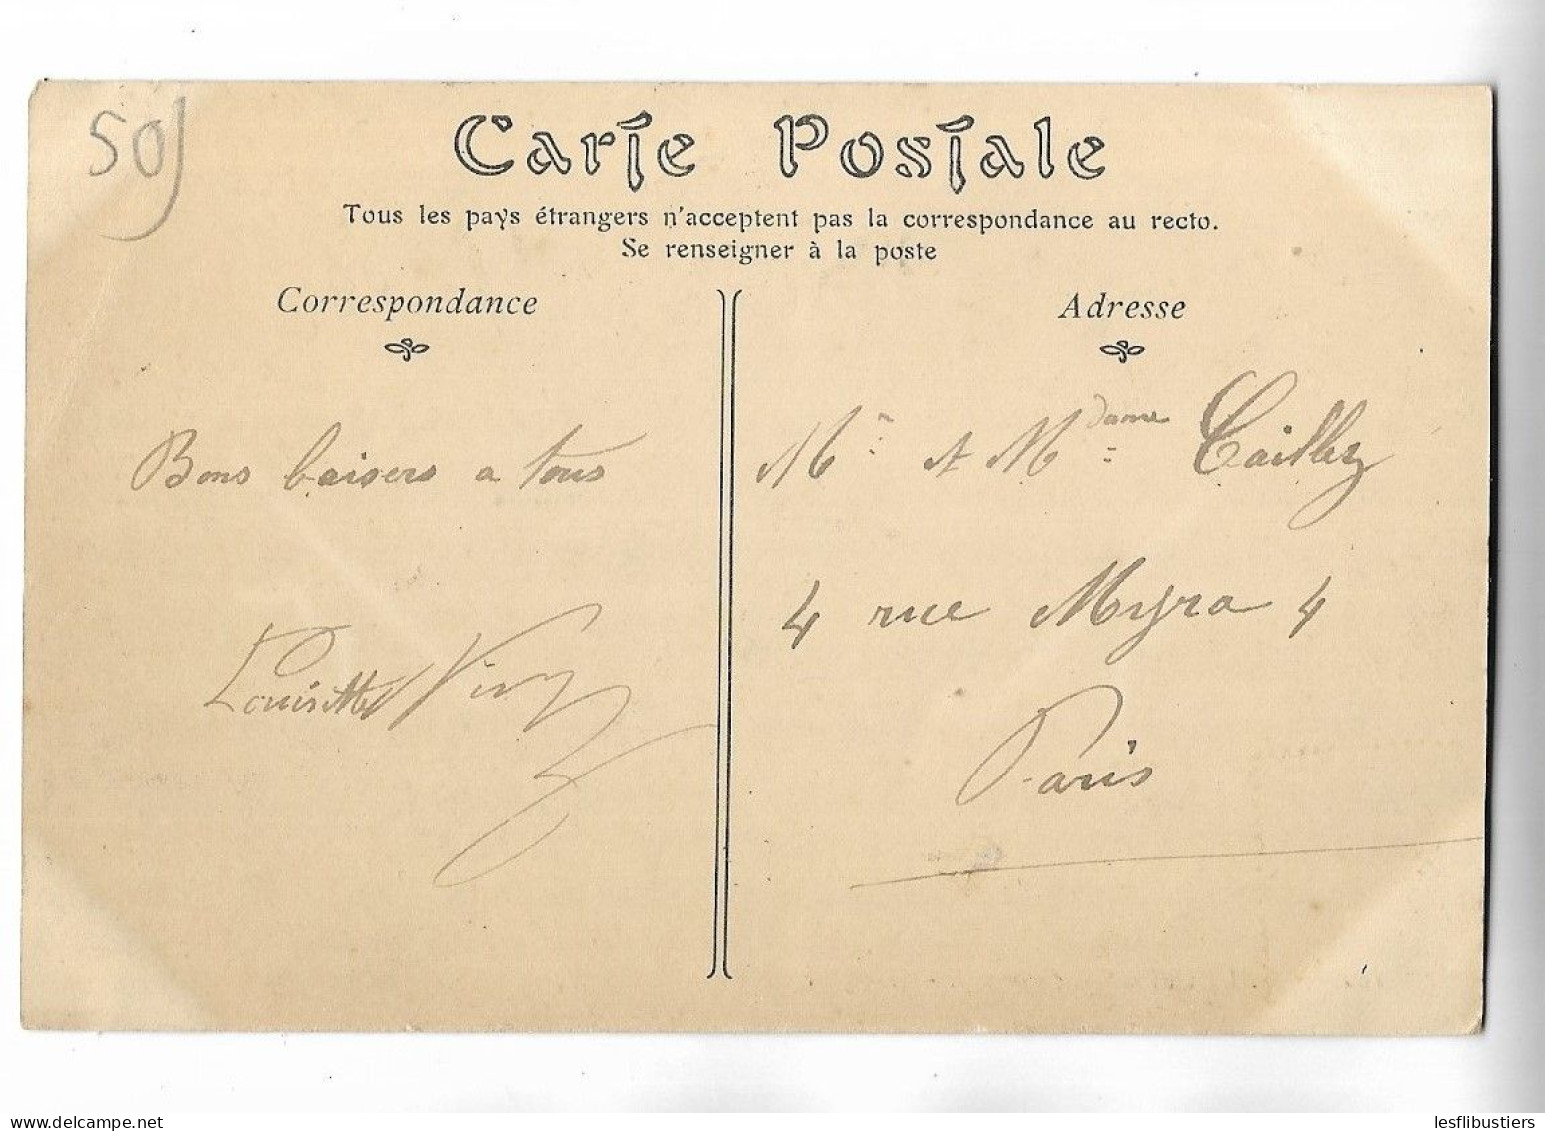 50
Carte Postale
Tous les pays étrangers n'acceptent pas la correspondance au recto.
Se renseigner à la poste
Correspondance
Bons baisers a tous
Louisette
Adresse
Mr et Mdame
4 rue Myra 4
Paris
lesflibustiers